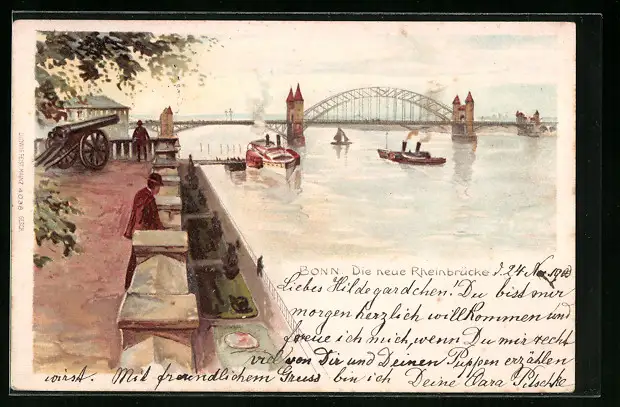 BONN. Die neue Rheinbrücke
d. 24 Nov 1903
Liebes Hildegardchen! Du bist mir
morgen herzlich willkommen und
freue ich mich, wenn Du mir recht
viel von Dir und Deinen Puppen erzählen
wirst. Mit freundlichem Gruss bin ich Deine Clara Pitschke